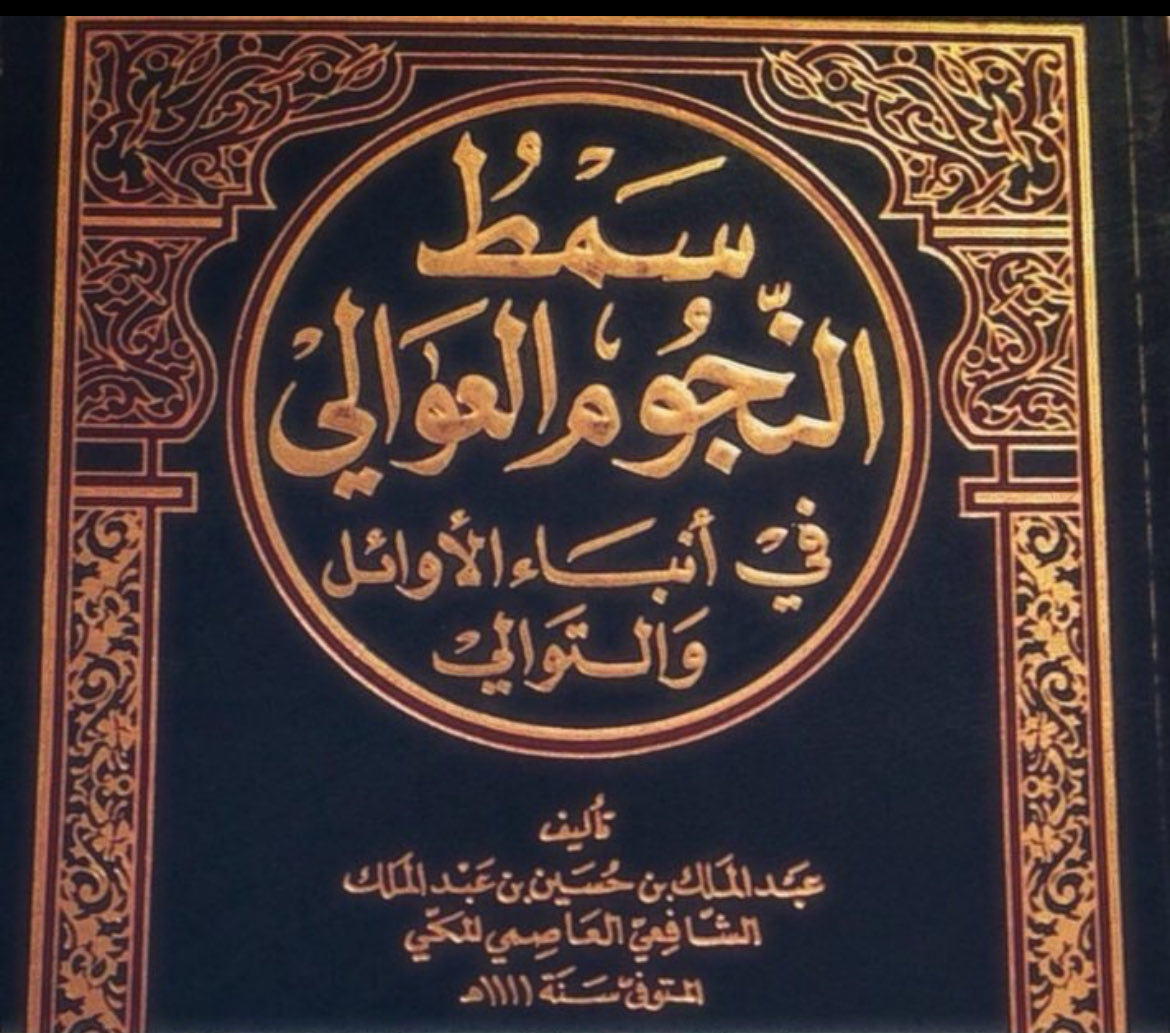 سَمْطُ
النّجُوم العَوَالي
في أنبَاء الأوائل
وَالتَوَالي
تأُليف
عَبد المَلك بن حُسَين بن عَبْد المَلك
الشَّافِعيّ العَاصِمي المكيّ
المتوفىّ سَنَة ١١١١هـ